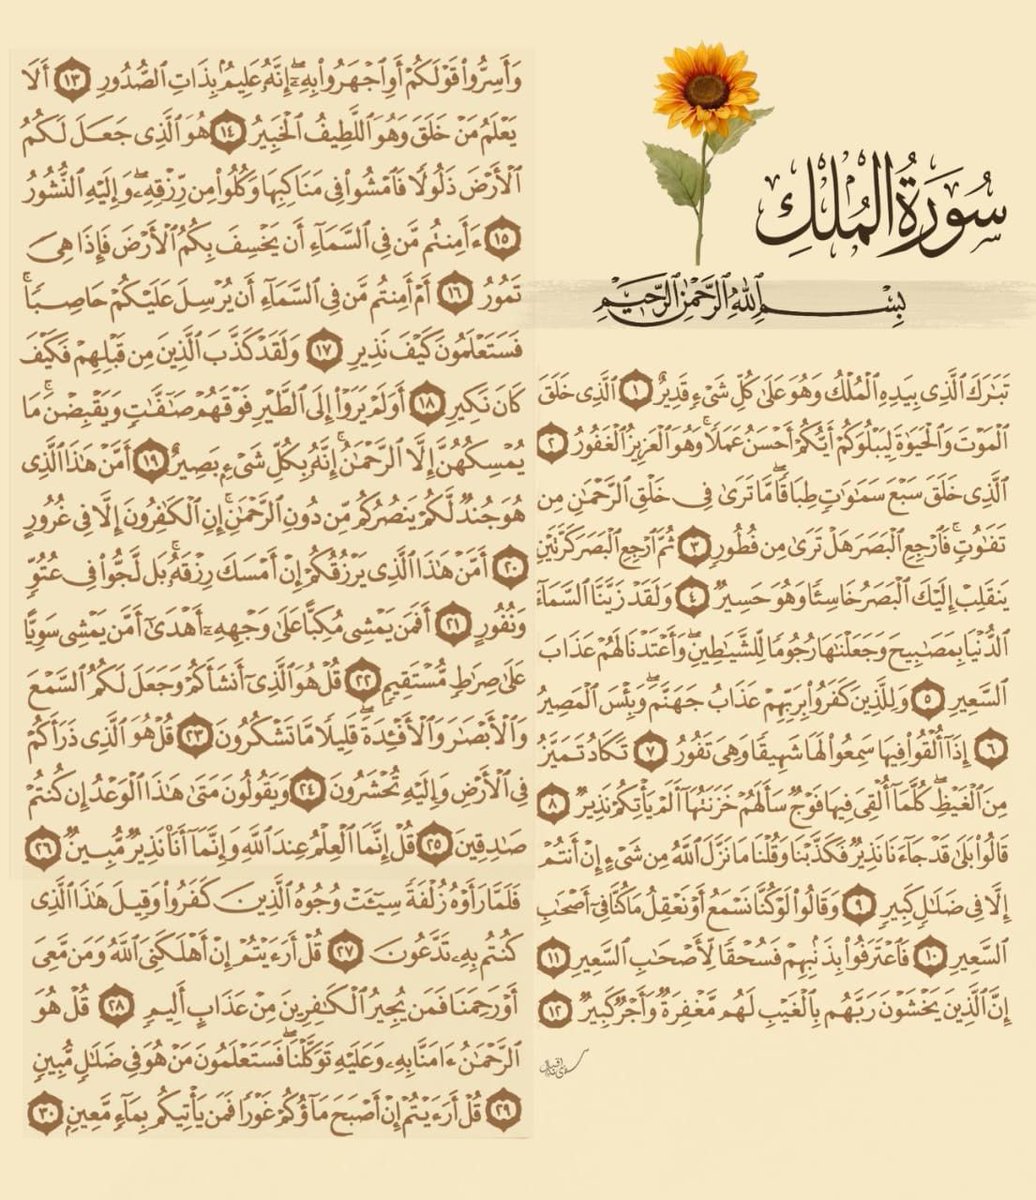 سُورَةُ الْمُلْكِ
بِسْمِ ٱللَّهِ ٱلرَّحْمَٰنِ ٱلرَّحِيمِ
تَبَٰرَكَ ٱلَّذِى بِيَدِهِ ٱلْمُلْكُ وَهُوَ عَلَىٰ كُلِّ شَىْءٍ قَدِيرٌ ١ ٱلَّذِى خَلَقَ
ٱلْمَوْتَ وَٱلْحَيَوٰةَ لِيَبْلُوَكُمْ أَيُّكُمْ أَحْسَنُ عَمَلًا ۚ وَهُوَ ٱلْعَزِيزُ ٱلْغَفُورُ ٢
ٱلَّذِى خَلَقَ سَبْعَ سَمَٰوَٰتٍ طِبَاقًا ۖ مَّا تَرَىٰ فِى خَلْقِ ٱلرَّحْمَٰنِ مِن
تَفَٰوُتٍ ۖ فَٱرْجِعِ ٱلْبَصَرَ هَلْ تَرَىٰ مِن فُطُورٍ ٣ ثُمَّ ٱرْجِعِ ٱلْبَصَرَ كَرَّتَيْنِ
يَنقَلِبْ إِلَيْكَ ٱلْبَصَرُ خَاسِئًا وَهُوَ حَسِيرٌ ٤ وَلَقَدْ زَيَّنَّا ٱلسَّمَآءَ
ٱلدُّنْيَا بِمَصَٰبِيحَ وَجَعَلْنَٰهَا رُجُومًا لِّلشَّيَٰطِينِ ۖ وَأَعْتَدْنَا لَهُمْ عَذَابَ
ٱلسَّعِيرِ ٥ وَلِلَّذِينَ كَفَرُوا۟ بِرَبِّهِمْ عَذَابُ جَهَنَّمَ ۖ وَبِئْسَ ٱلْمَصِيرُ
٦ إِذَآ أُلْقُوا۟ فِيهَا سَمِعُوا۟ لَهَا شَهِيقًا وَهِىَ تَفُورُ ٧ تَكَادُ تَمَيَّزُ
مِنَ ٱلْغَيْظِ ۖ كُلَّمَآ أُلْقِىَ فِيهَا فَوْجٌ سَأَلَهُمْ خَزَنَتُهَآ أَلَمْ يَأْتِكُمْ نَذِيرٌ ٨
قَالُوا۟ بَلَىٰ قَدْ جَآءَنَا نَذِيرٌ فَكَذَّبْنَا وَقُلْنَا مَا نَزَّلَ ٱللَّهُ مِن شَىْءٍ إِنْ أَنتُمْ
إِلَّا فِى ضَلَٰلٍ كَبِيرٍ ٩ وَقَالُوا۟ لَوْ كُنَّا نَسْمَعُ أَوْ نَعْقِلُ مَا كُنَّا فِىٓ أَصْحَٰبِ
ٱلسَّعِيرِ ١٠ فَٱعْتَرَفُوا۟ بِذَنۢبِهِمْ فَسُحْقًا لِّأَصْحَٰبِ ٱلسَّعِيرِ ١١
إِنَّ ٱلَّذِينَ يَخْشَوْنَ رَبَّهُم بِٱلْغَيْبِ لَهُم مَّغْفِرَةٌ وَأَجْرٌ كَبِيرٌ ١٢
وَأَسِرُّوا۟ قَوْلَكُمْ أَوِ ٱجْهَرُوا۟ بِهِۦٓ ۖ إِنَّهُۥ عَلِيمٌۢ بِذَاتِ ٱلصُّدُورِ ١٣ أَلَا
يَعْلَمُ مَنْ خَلَقَ وَهُوَ ٱللَّطِيفُ ٱلْخَبِيرُ ١٤ هُوَ ٱلَّذِى جَعَلَ لَكُمُ
ٱلْأَرْضَ ذَلُولًا فَٱمْشُوا۟ فِى مَنَاكِبِهَا وَكُلُوا۟ مِن رِّزْقِهِۦ ۖ وَإِلَيْهِ ٱلنُّشُورُ
١٥ ءَأَمِنتُم مَّن فِى ٱلسَّمَآءِ أَن يَخْسِفَ بِكُمُ ٱلْأَرْضَ فَإِذَا هِىَ
تَمُورُ ١٦ أَمْ أَمِنتُم مَّن فِى ٱلسَّمَآءِ أَن يُرْسِلَ عَلَيْكُمْ حَاصِبًا ۖ
فَسَتَعْلَمُونَ كَيْفَ نَذِيرِ ١٧ وَلَقَدْ كَذَّبَ ٱلَّذِينَ مِن قَبْلِهِمْ فَكَيْفَ
كَانَ نَكِيرِ ١٨ أَوَلَمْ يَرَوْا۟ إِلَى ٱلطَّيْرِ فَوْقَهُمْ صَٰٓفَّٰتٍ وَيَقْبِضْنَ ۚ مَا
يُمْسِكُهُنَّ إِلَّا ٱلرَّحْمَٰنُ ۚ إِنَّهُۥ بِكُلِّ شَىْءٍۭ بَصِيرٌ ١٩ أَمَّنْ هَٰذَا ٱلَّذِى
هُوَ جُندٌ لَّكُمْ يَنصُرُكُم مِّن دُونِ ٱلرَّحْمَٰنِ ۚ إِنِ ٱلْكَٰفِرُونَ إِلَّا فِى غُرُورٍ
٢٠ أَمَّنْ هَٰذَا ٱلَّذِى يَرْزُقُكُمْ إِنْ أَمْسَكَ رِزْقَهُۥ ۚ بَل لَّجُّوا۟ فِى عُتُوٍّ
وَنُفُورٍ ٢١ أَفَمَن يَمْشِى مُكِبًّا عَلَىٰ وَجْهِهِۦٓ أَهْدَىٰٓ أَمَّن يَمْشِى سَوِيًّا
عَلَىٰ صِرَٰطٍ مُّسْتَقِيمٍ ٢٢ قُلْ هُوَ ٱلَّذِىٓ أَنشَأَكُمْ وَجَعَلَ لَكُمُ ٱلسَّمْعَ
وَٱلْأَبْصَٰرَ وَٱلْأَفْـِٔدَةَ ۖ قَلِيلًا مَّا تَشْكُرُونَ ٢٣ قُلْ هُوَ ٱلَّذِى ذَرَأَكُمْ
فِى ٱلْأَرْضِ وَإِلَيْهِ تُحْشَرُونَ ٢٤ وَيَقُولُونَ مَتَىٰ هَٰذَا ٱلْوَعْدُ إِن كُنتُمْ
صَٰدِقِينَ ٢٥ قُلْ إِنَّمَا ٱلْعِلْمُ عِندَ ٱللَّهِ وَإِنَّمَآ أَنَا۠ نَذِيرٌ مُّبِينٌ ٢٦
فَلَمَّا رَأَوْهُ زُلْفَةً سِيٓـَٔتْ وُجُوهُ ٱلَّذِينَ كَفَرُوا۟ وَقِيلَ هَٰذَا ٱلَّذِى
كُنتُم بِهِۦ تَدَّعُونَ ٢٧ قُلْ أَرَءَيْتُمْ إِنْ أَهْلَكَنِىَ ٱللَّهُ وَمَن مَّعِىَ
أَوْ رَحِمَنَا فَمَن يُجِيرُ ٱلْكَٰفِرِينَ مِنْ عَذَابٍ أَلِيمٍ ٢٨ قُلْ هُوَ
ٱلرَّحْمَٰنُ ءَامَنَّا بِهِۦ وَعَلَيْهِ تَوَكَّلْنَا ۖ فَسَتَعْلَمُونَ مَنْ هُوَ فِى ضَلَٰلٍ مُّبِينٍ
٢٩ قُلْ أَرَءَيْتُمْ إِنْ أَصْبَحَ مَآؤُكُمْ غَوْرًا فَمَن يَأْتِيكُم بِمَآءٍ مَّعِينٍۭ ٣٠